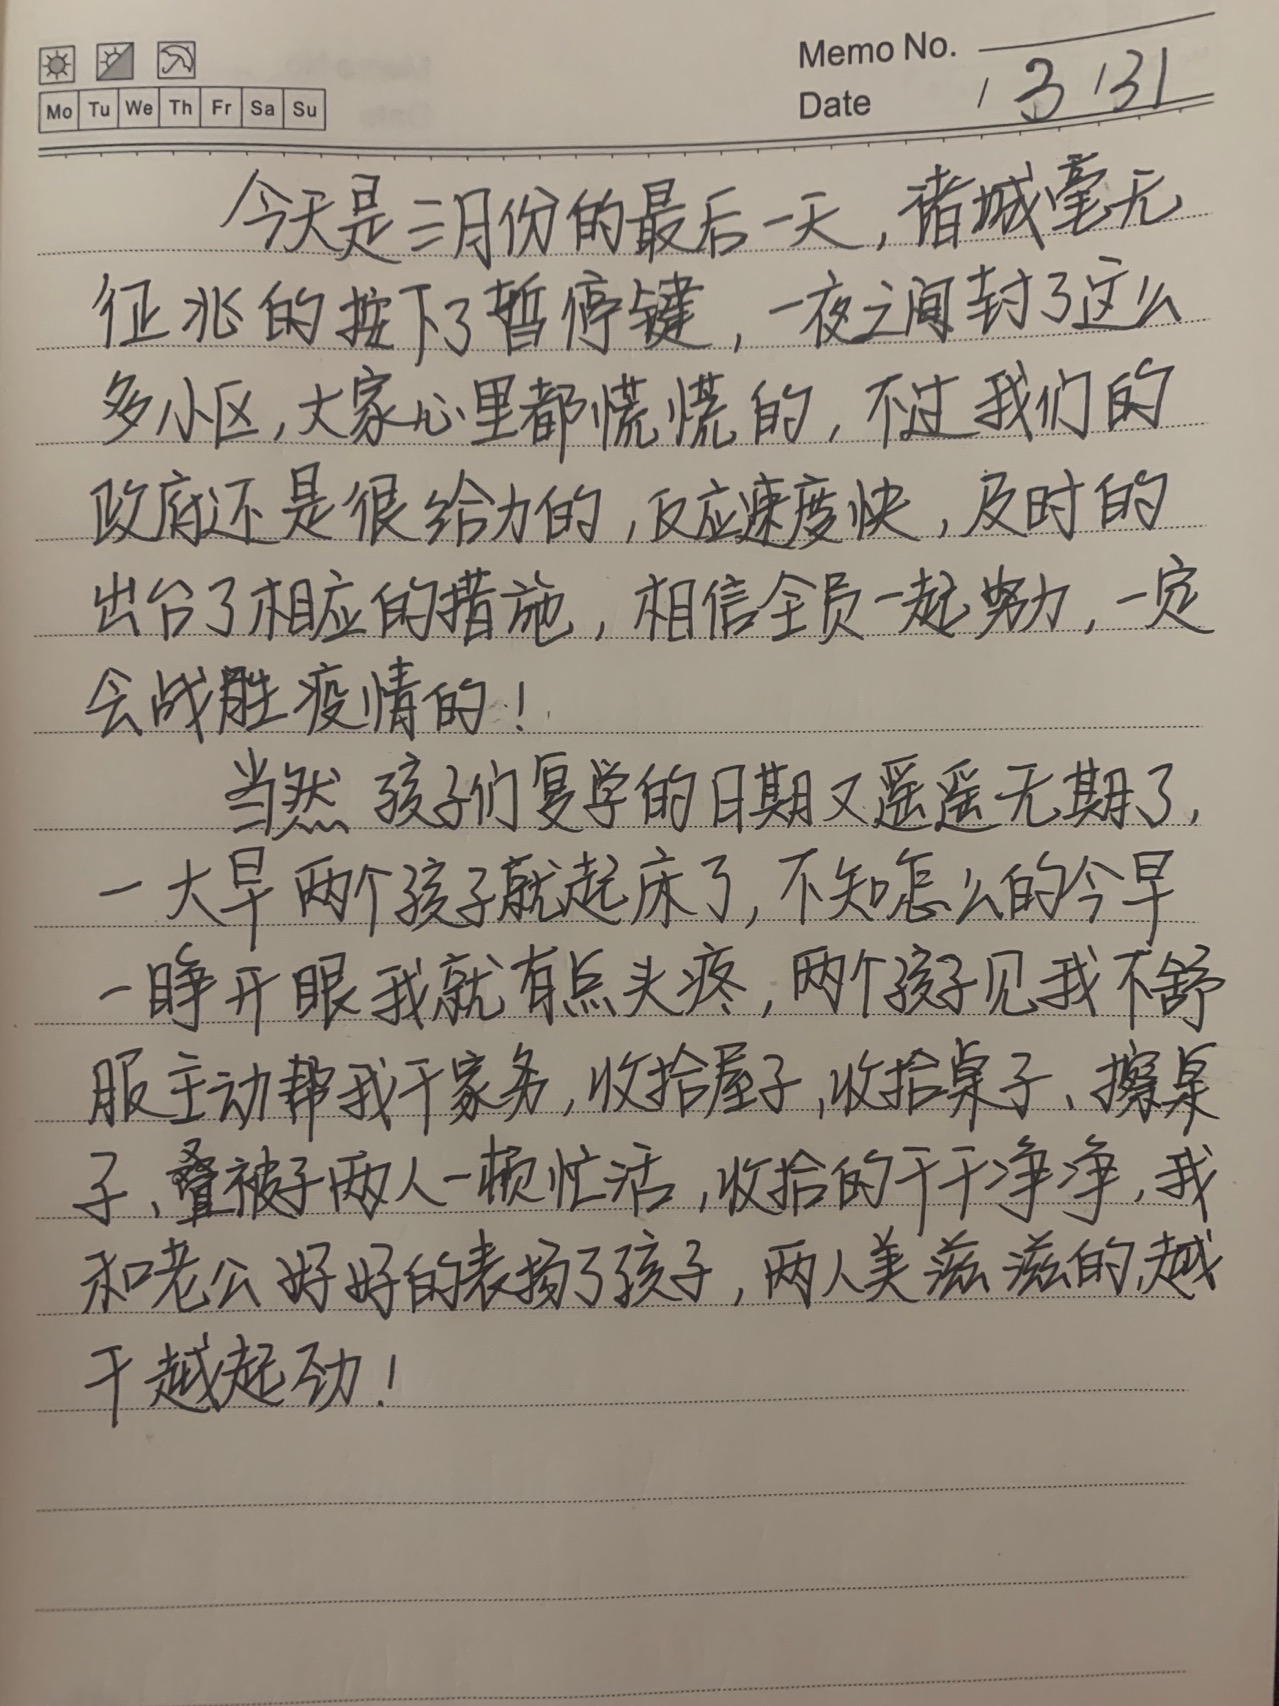 Memo No.
Mo Tu We Th Fr Sa Su
Date / 3 / 31
今天是三月份的最后一天,诸城毫无
征兆的按下了暂停键,一夜之间封了这么
多小区,大家心里都慌慌的,不过我们的
政府还是很给力的,反应速度快,及时的
出台了相应的措施,相信全员一起努力,一定
会战胜疫情的!
当然孩子们复学的日期又遥遥无期了,
一大早两个孩子就起床了,不知怎么的今早
一睁开眼我就有点头疼,两个孩子见我不舒
服主动帮我干家务,收拾屋子,收拾桌子、擦桌
子、叠被子两人一顿忙活,收拾的干干净净,我
和老公好好的表扬了孩子,两人美滋滋的,越
干越起劲!